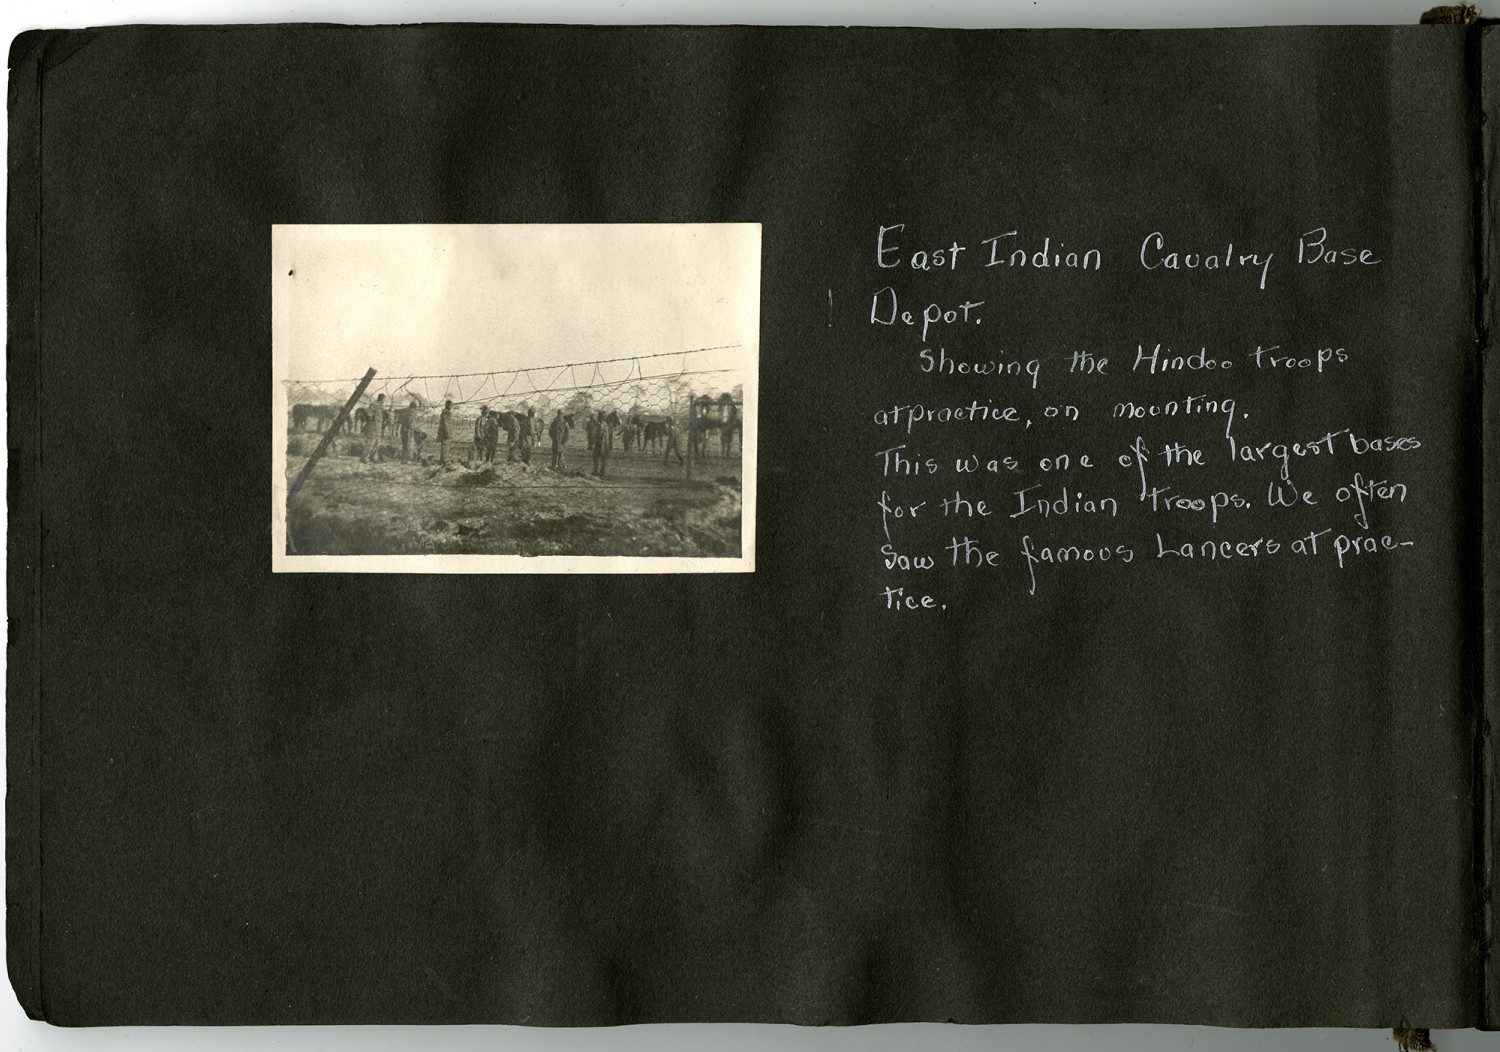 East Indian Cavalry Base
Depot.
Showing the Hindoo troops
at practice, on mounting.
This was one of the largest bases
for the Indian Troops. We often
saw the famous Lancers at prac-
tice.